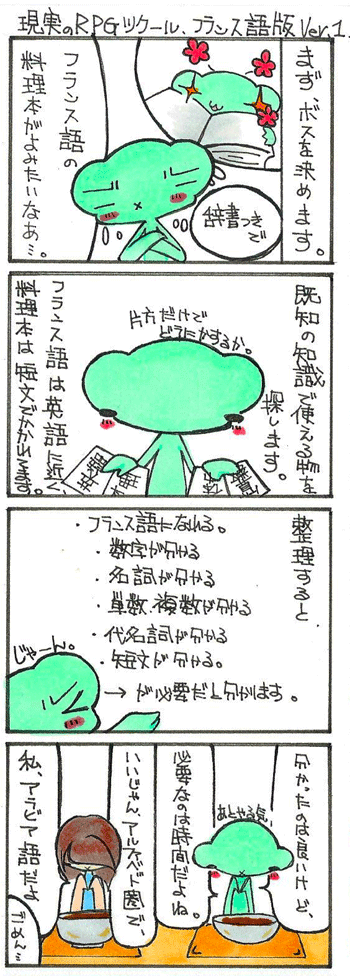 現実のRPGツクール、フランス語版 Ver.1.
まず ボスを決めます。
フランス語の
料理本がよみたいなあ…。
辞書つき
で
既知の知識で使える物を
探します。
片方だけで
どうにかするか。
フランス語は英語に近く、
料理本は短文でかかれてます。
整理すると
・フランス語になれる。
・数字が分かる
・名詞が分かる
・単数、複数が分かる
・代名詞が分かる
・短文が分かる。
→が必要だと分かります。
じゃーん。
分かったのは良いけど、
必要なのは時間だよね。
あとやる気。
いいじゃん、アルファベット圏で、
私、アラビア語だよ
ごめん…